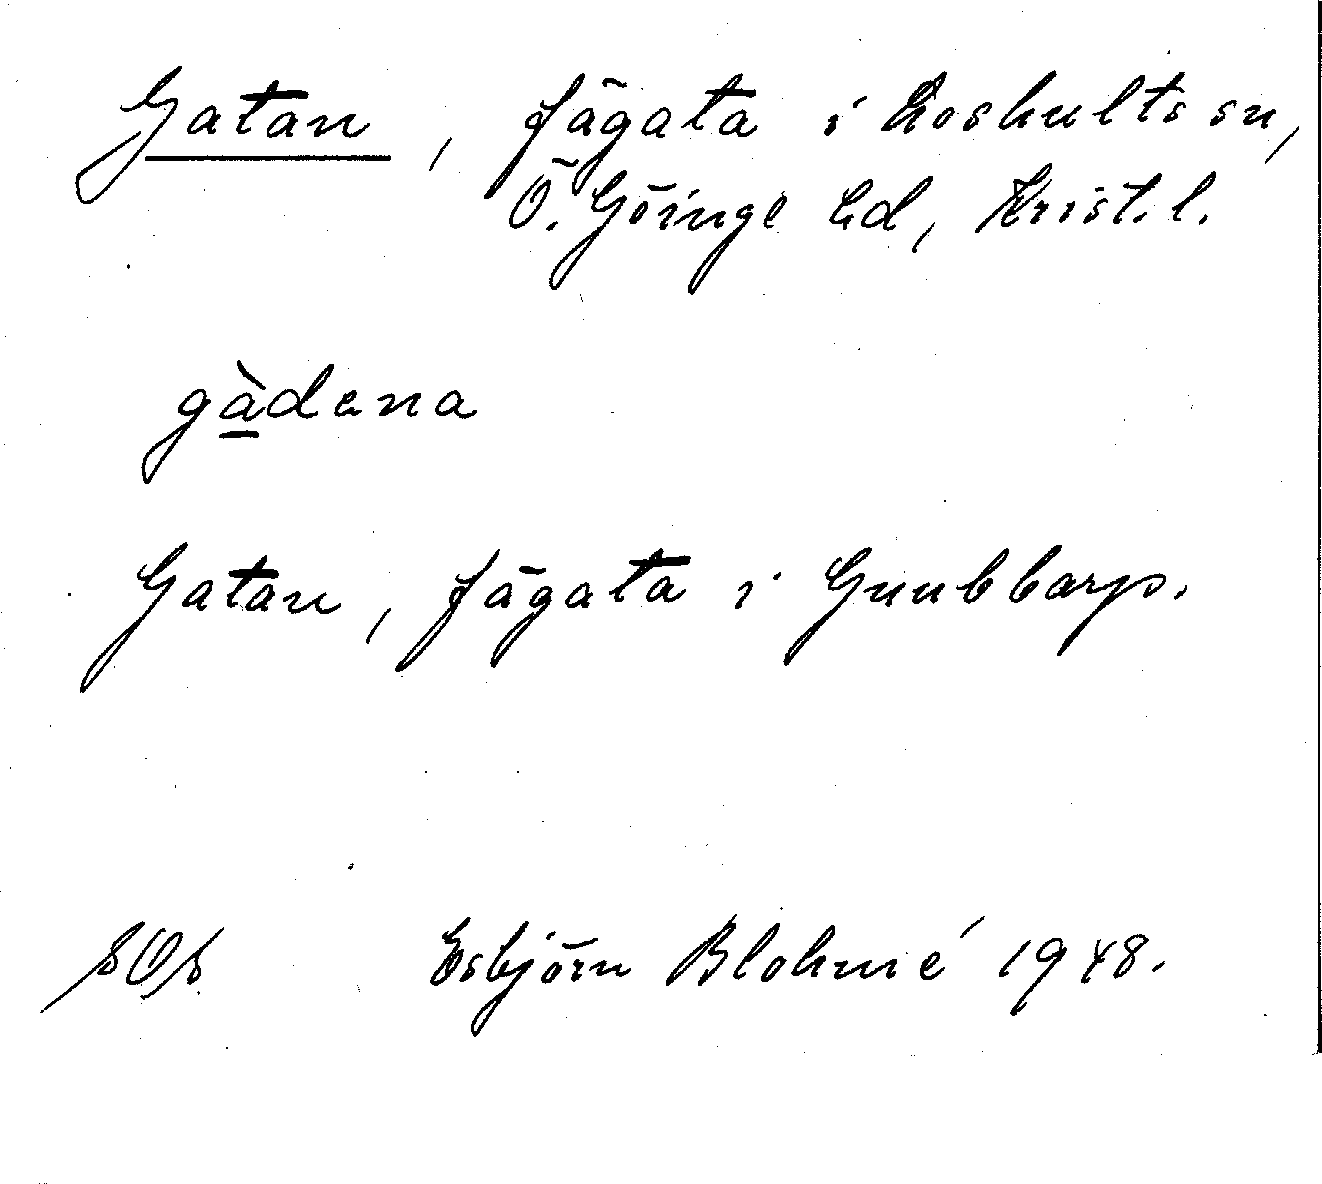 Gatan, fägata i Loshults sn,
Ö. Göinge hd, Krist. l.
gàdena
Gatan, fägata i Gunbbarp.
Esbjörn Blohmé 1948.